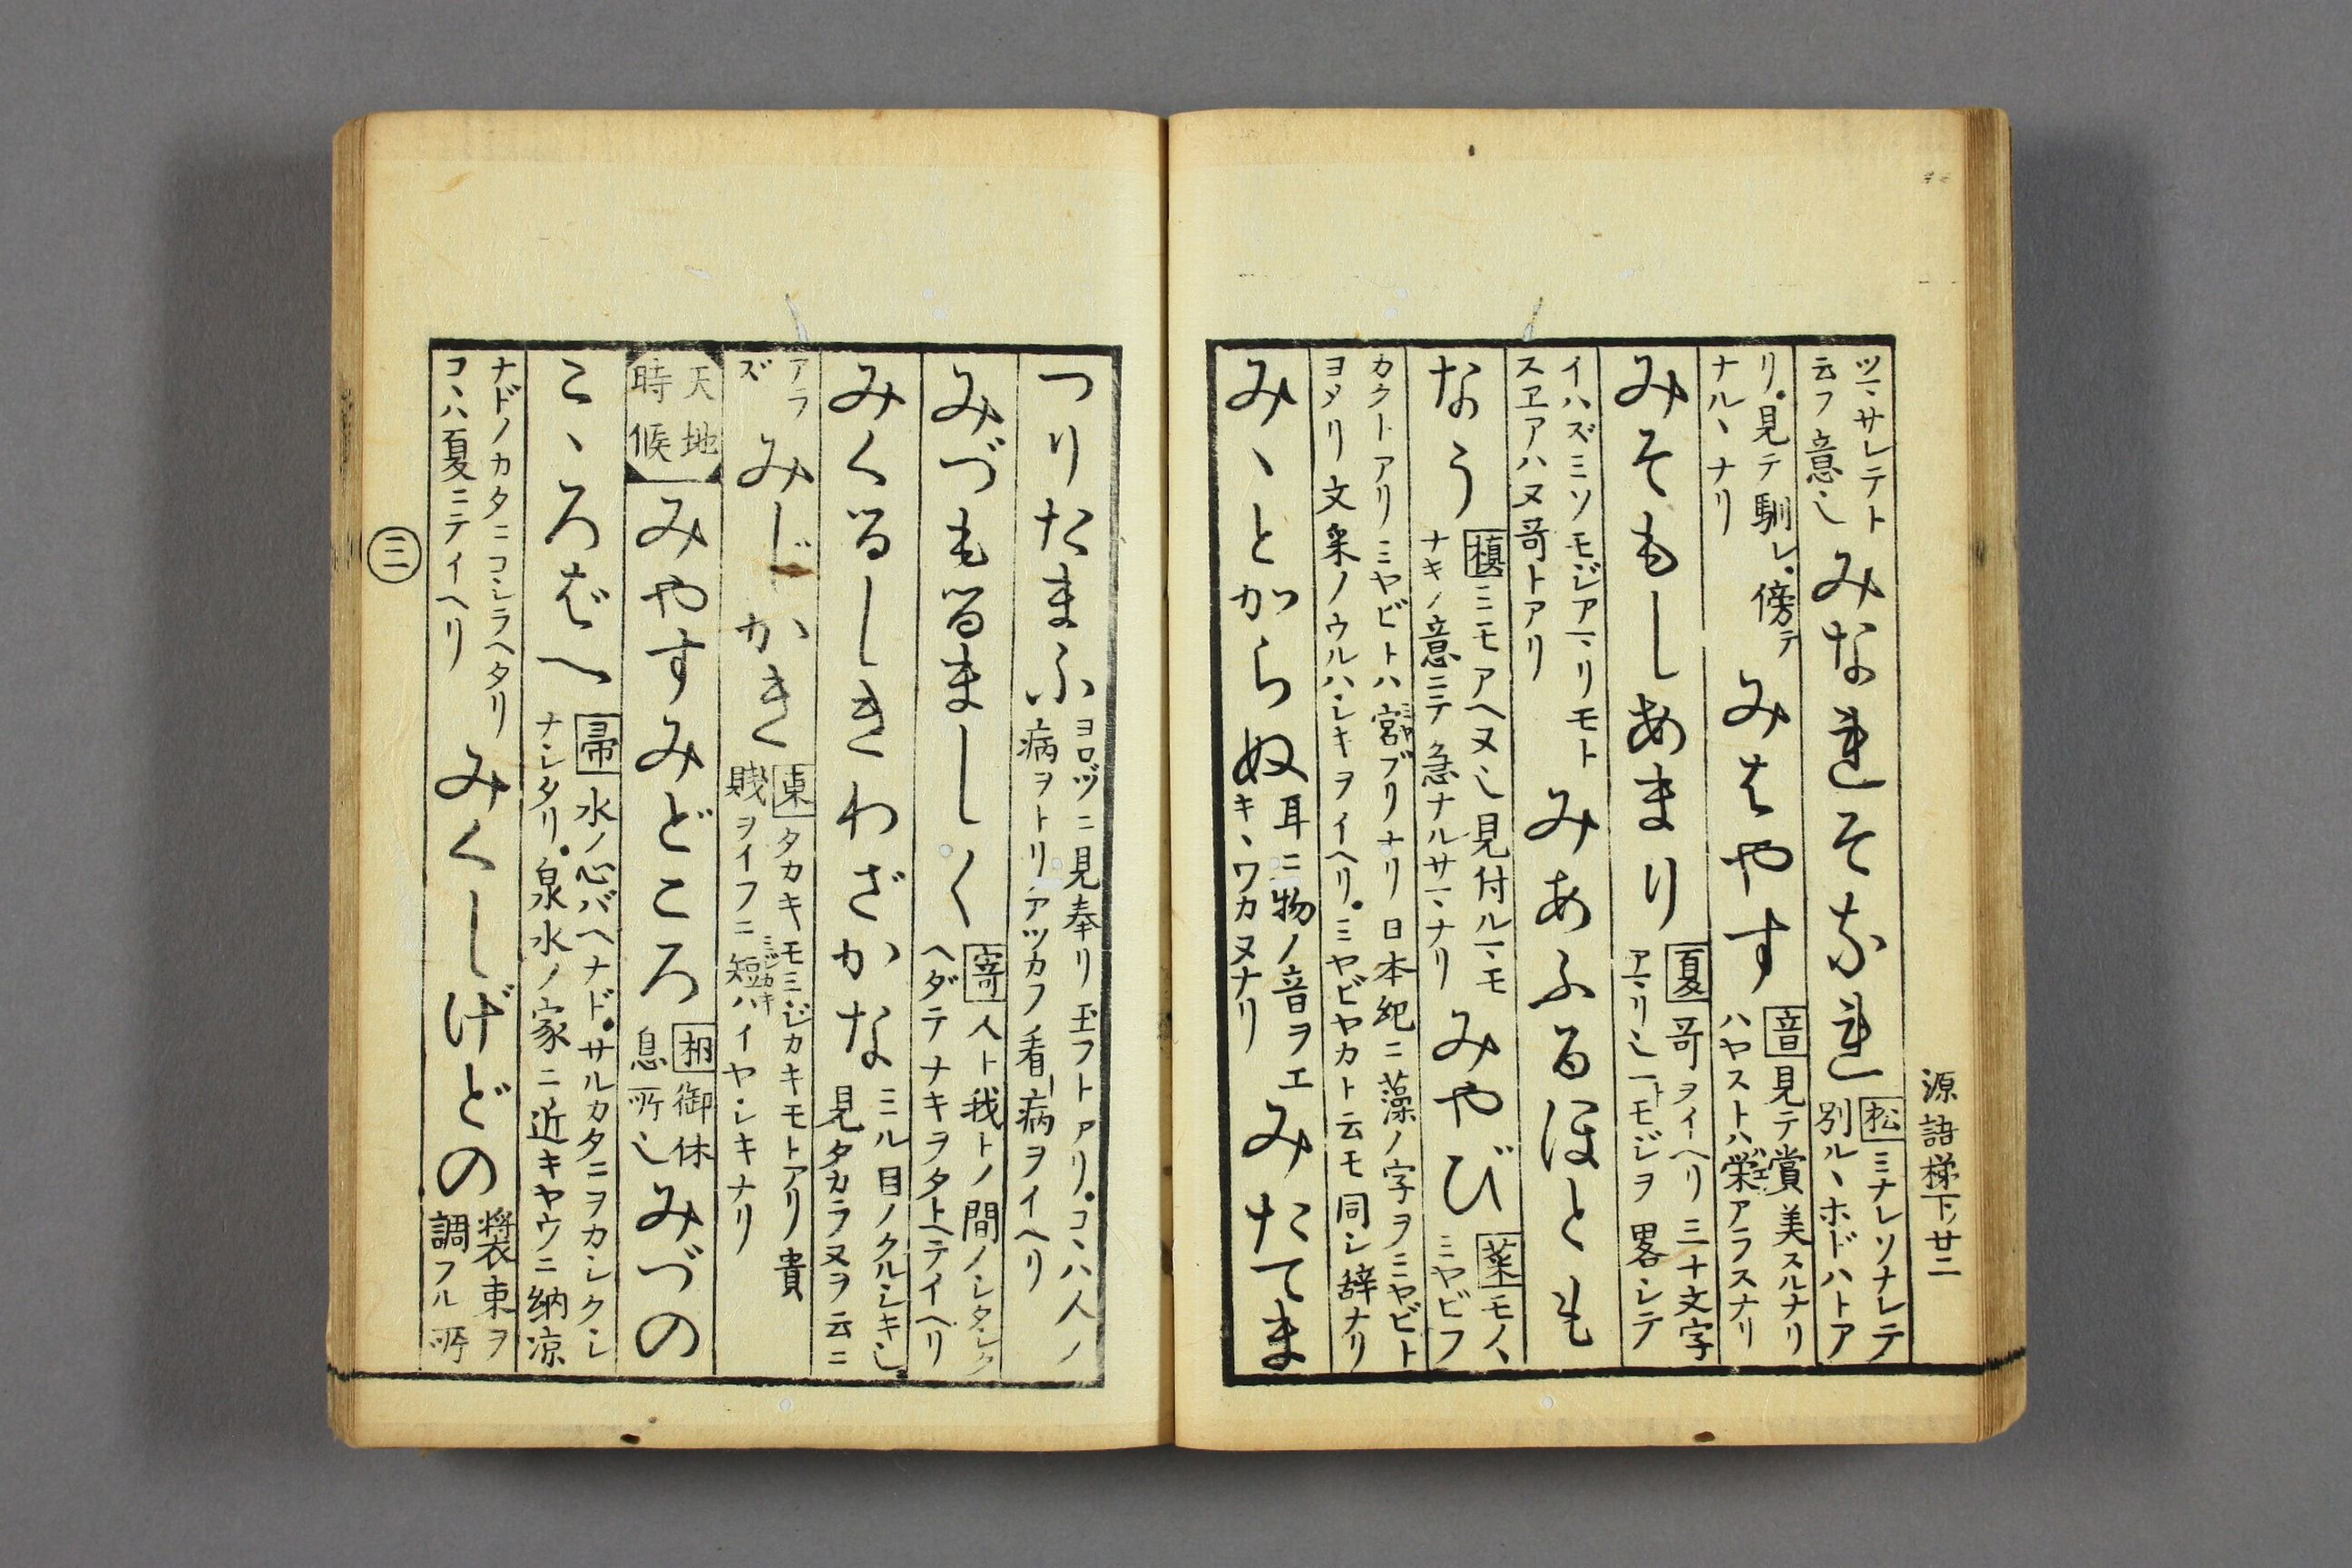 源語梯下ノ廿二
ツヽサレテト
云フ意也
みなれそなれ
松
ミナレソナレテ
別ルヽホドハトア
リ。見テ馴レ。傍テ
ナルヽナリ
みはやす
音
見テ賞美スルナリ
ハヤストハ栄アラスナリ
みそもしあまり
夏
哥ヲイヘリ三十文字
アマリ也トモジヲ畧シテ
イハズミソモジアマリモト
スヱアハヌ哥トアリ
みあふるほとも
なう
槙
ミモアヘヌ也見付ルマモ
ナキノ意ニテ急ナルサマナリ
みやび
葉
モノヽ
ミヤビフ
カクトアリミヤビトハ宮ブリナリ日本紀ニ藻ノ字ヲミヤビト
ヨメリ文采ノウルハシキヲイヘリ。ミヤビヤカト云モ同シ辞ナリ
みゝとがらぬ
耳ニ物ノ音ヲエ
キヽワカヌナリ
みたてま
つりたまふ
ヨロヅニ見奉リ玉フトアリ。コヽハ人ノ
病ヲトリアツカフ看病ヲイヘリ
みづもるましく
寄
人ト我トノ間ノシタシク
ヘダテナキヲタトヘテイヘリ
みくるしきわざかな
ミル目ノクルシキ也
見タカラヌヲ云ニ
アラ
ズ
みじかき
東
タカキモミジカキモトアリ貴
賤ヲイフニ短ハイヤシキナリ
天地
時候
みやすみどころ
桐
御休
息所也
みづの
こゝろばへ
帚
水ノ心バヘナド。サルカタニヲカシクシ
ナシタリ。泉水ノ家ニ近キヤウニ納凉
ナドノカタニコシラヘタリ
コヽハ夏ニテイヘリ
みくしげどの
装束ヲ
調フル所
三